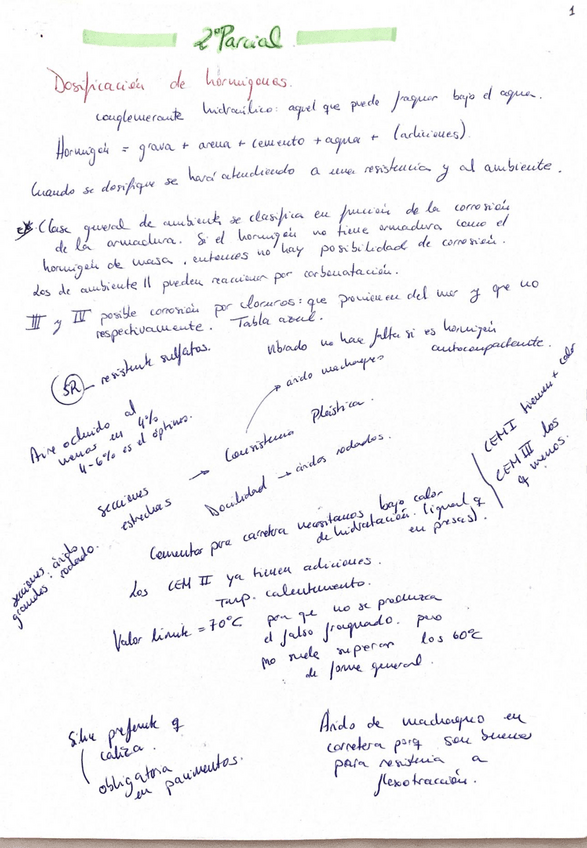 1
2º Parcial
Dosificación de hormigones.
conglomerante hidraúlico: aquel que puede fraguar bajo el agua.
Hormigón = grava + arena + cemento + agua + (adiciones).
Cuando se dosifique se hará atendiendo a una resistencia y al ambiente.
Clase general de ambiente se clasifica en función de la corrosión
de la armadura. Si el hormigón no tiene armadura como el
hormigón de masa, entonces no hay posibilidad de corrosión.
Los de ambiente II pueden reaccionar por carbonatación.
III y IV posible corrosión por cloruros: que provienen del mar y que no
respectivamente. Tabla azul.
SR - resistente sulfatos.
vibrado no hace falta si es hormigón
autocompactante.
Aire ocluido al
menos en 4%
4-6% es el óptimo.
→ árido machaqueo
Consistencia Plástica.
secciones
estrechas →
Docilidad → áridos rodados.
secciones
grandes: árido
rodado.
Cementos para carretera necesitamos bajo calor
de hidratación. (igual q
en presas).
CEM I tienen + calor
CEM III los
q menos.
Los CEM II ya tienen adiciones.
Tmp. calentamiento.
Valor límite = 70ºC
para que no se produzca
el falso fraguado. pero
no suele superar los 60ºC
de forma general.
Silic preferente q
caliza.
obligatoria
en pavimentos.
Árido de machaqueo en
carretera porq son buenos
para resistencia a
flexotracción.